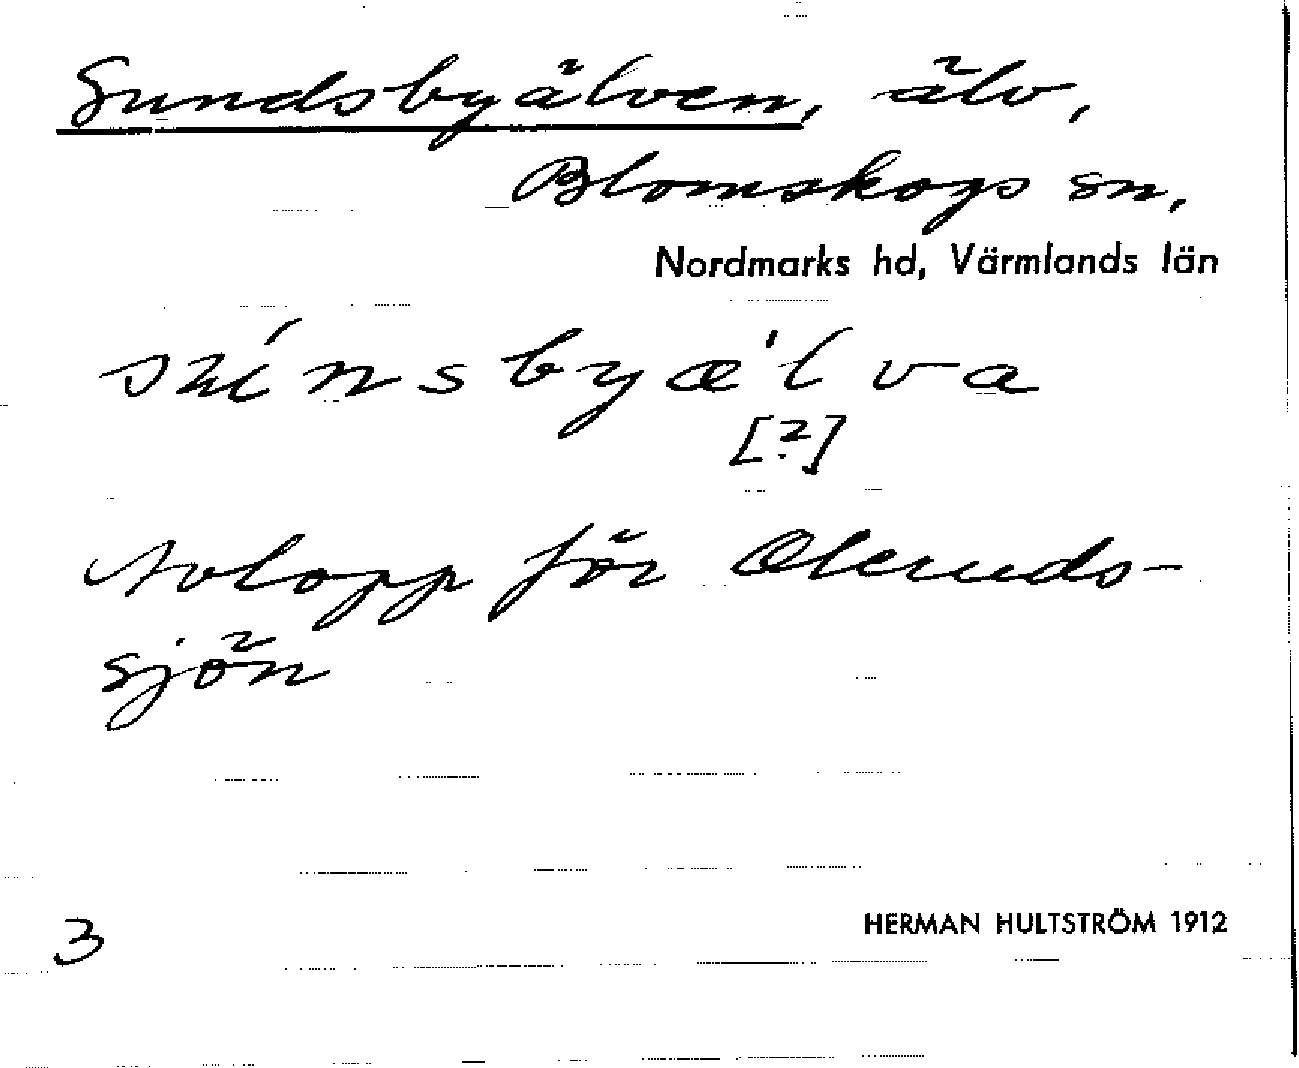 Sundsbyälven, älv,
Blomskogs sn,
Nordmarks hd, Värmlands län
[?]
Avlopp för Oleruds-
sjön
3
HERMAN HULTSTRÖM 1912